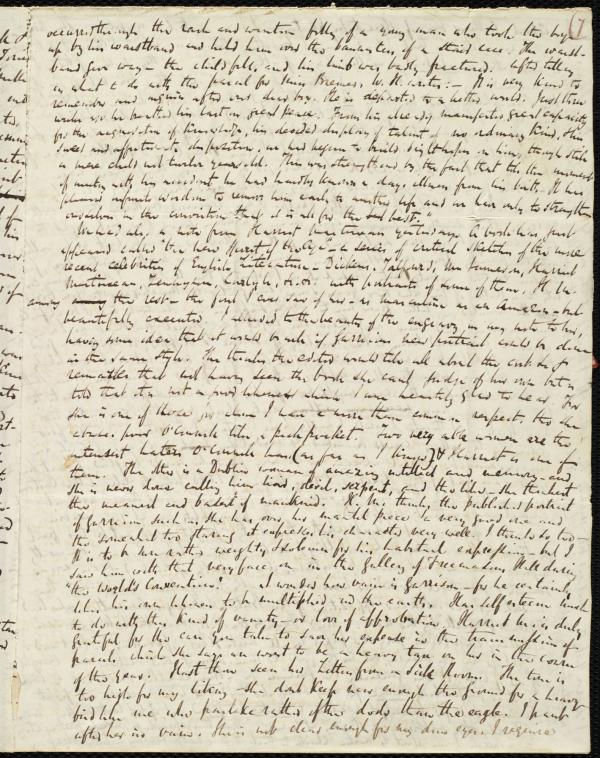 (7
occurred through the rash and wanton folly of a young man who took the boy
up by his waistband and held him over the banisters of a stair case. The waist-
band gave way – the child fell, and his limb was badly fractured. After telling
us what to do with the parcel for Miss Bremer, W. H. writes:– "It is very kind to
remember and inquire after our dear boy. He is departed to a better world. Just three
weeks ago he breathed his last in great peace. From his already manifested great capacity
for the acquisition of knowledge, his decided display of talent of no ordinary kind, his
sweet and affectionate disposition, we had begun to build bright hopes on him, though still
a mere child not twelve years old. This was strengthened by the fact that till the moment
of meeting with his accident he had hardly known a day's illness from his birth. It has
pleased infinite wisdom to remove him early to another life and we have only to strengthen
ourselves in the conviction that it is all for the best."
We had also a note from Harriet Martineau yesterday. A book has just
appeared called "the New Spirit of the Age" – a series of critical sketches of the more
recent celebrities of English Literature – Dickens, Talfourd, Mrs Jameson, Harriet
Martineau, Tennyson, Carlyle, &c. &c. with portraits of some of them. H. M.
among the rest – the first I ever saw of her – as masculine as an Amazon – but
beautifully executed. I alluded to the beauty of the engraving in my note to her,
having some idea that it would be well if Garrison's new portrait could be done
in the same style. She thinks the editor would tell all about the cost &c. &
remarks that not having seen the book she can't judge of her own but is
told that it is not a good likeness which I am heartily glad to hear. For
she is one of those for whom I have a more than common respect, tho she
abuses poor O'Connell like a pickpocket. Two very able women are the
intensest haters O'Connell has (as far as I know) & Harriet is one of
them. The other is a Dublin woman of amazing intellect and memory – and
she is never done calling him liar, devil, serpent, and the like – she thinks him
the meanest and basest of mankind. H. M. thinks the published portrait
of Garrison such as she has over her mantel piece "a very good one and
tho somewhat too staring it expresses his character very well." I think so too –
It is to be sure rather weighty & solemn for his habitual expression – but I
saw him with that very face on in the gallery of Freemasons Hall during
"the World's Convention." I wonder how vain is Garrison – for he certainly
likes his own likeness to be multiplied in the earth. Has self esteem much
to do with this kind of vanity – or love of approbation. Harriet M. is duly
grateful for the care you take to save her expense in the transmission of
parcels which she says are wont to be a heavy tax on her in the course
of the year. Hast thou seen her Letters from a Sick Room. The tone is
too high for my liking – she don't keep near enough the ground for a heavy
bird like me who partake rather of the dodo than the eagle. I pant
after her in vain. She is not clear enough for my dim eyes. I require